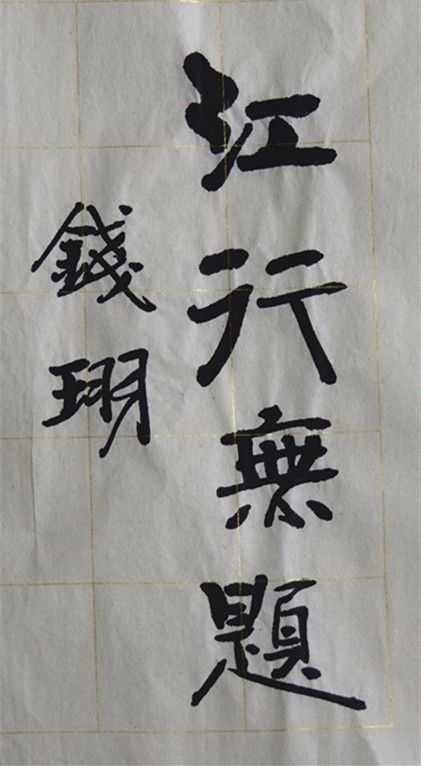 江行無題
錢珝